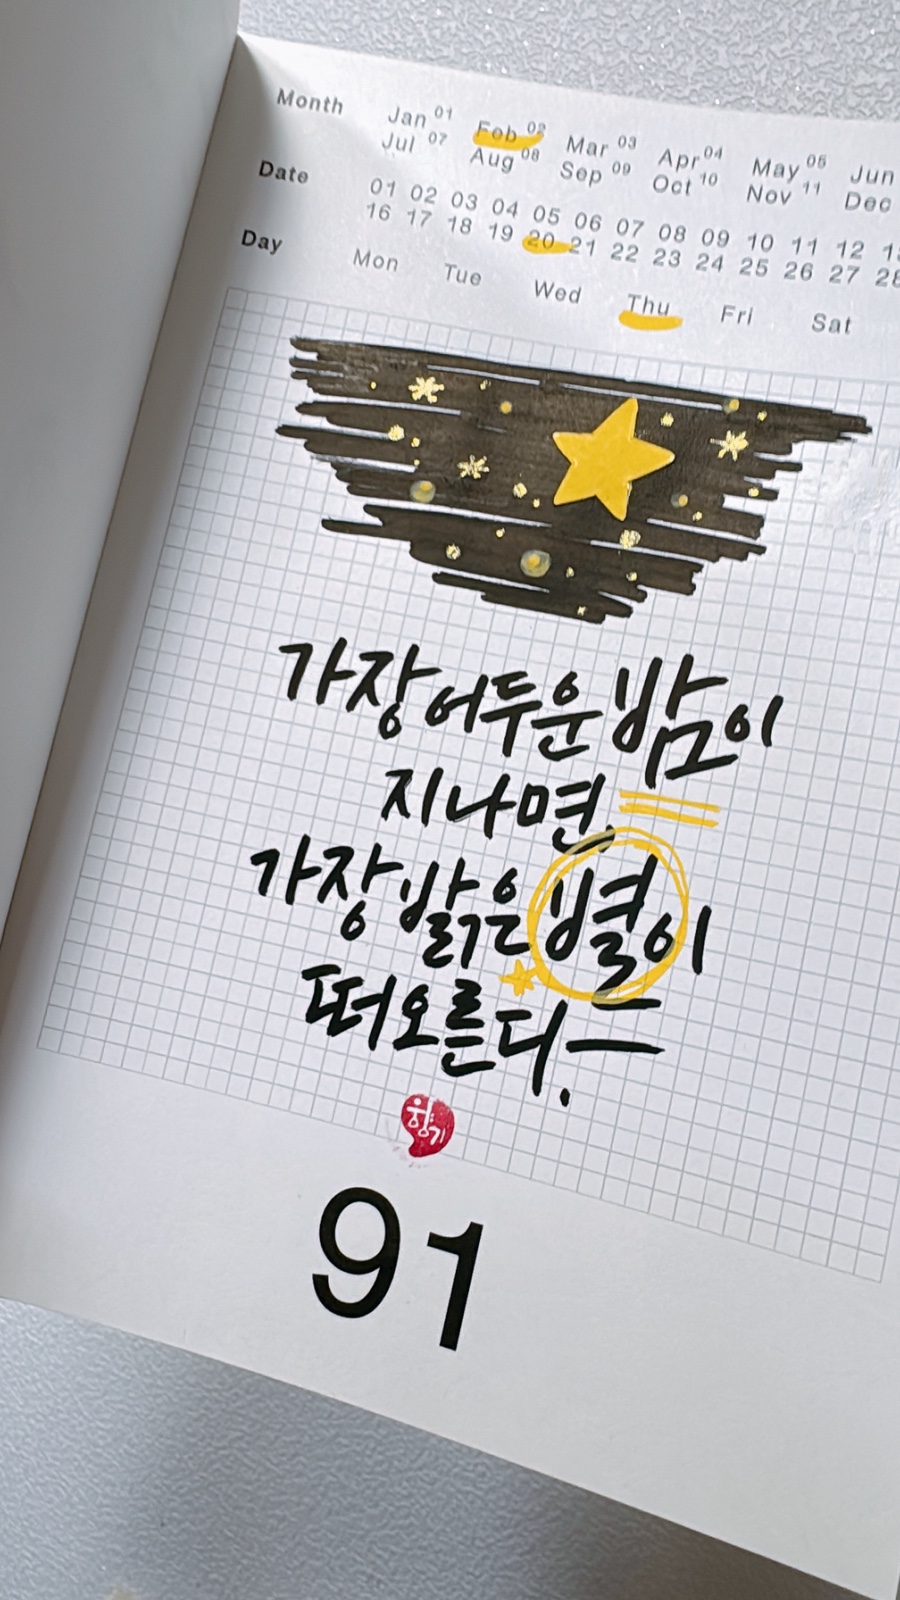 Month Jan 01 Feb 02 Mar 03 Apr 04 May 05 Jun
Jul 07 Aug 08 Sep 09 Oct 10 Nov 11 Dec
Date 01 02 03 04 05 06 07 08 09 10 11 12
16 17 18 19 20 21 22 23 24 25 26 27 28
Day Mon Tue Wed Thu Fri Sat
가장 어두운 밤이
지나면
가장 밝은 별이
떠오른다.
향기
91